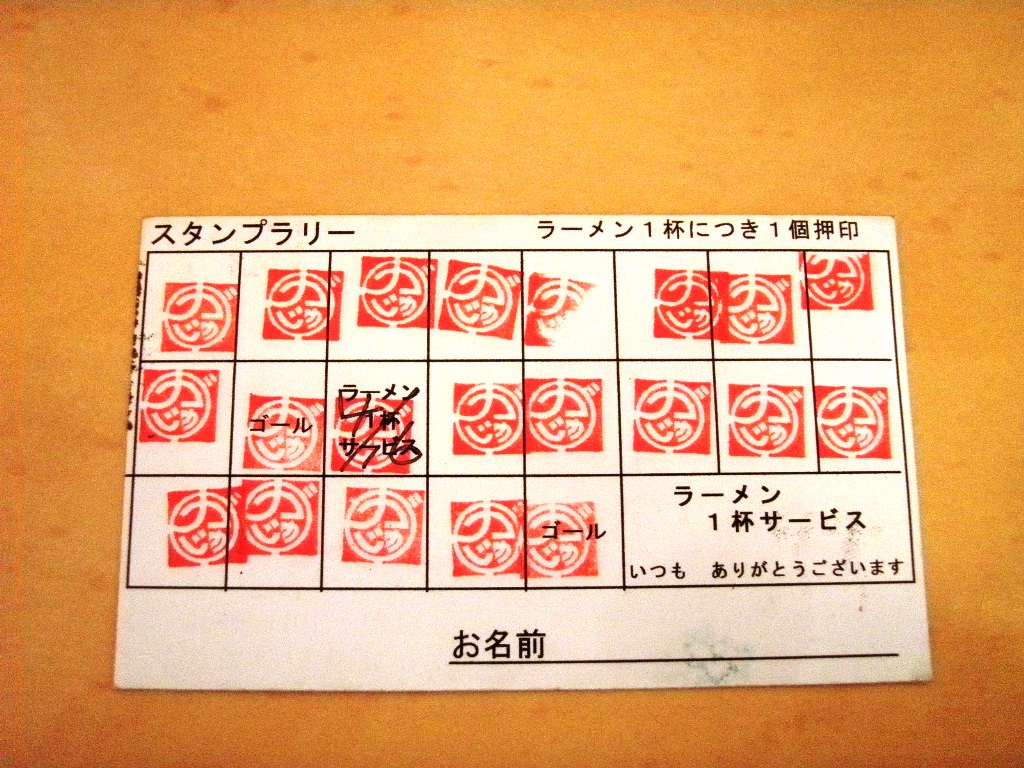 スタンプラリー ラーメン1杯につき1個押印
ゴール
ラーメン
1杯
サービス
ゴール
ラーメン
1杯サービス
いつも ありがとうございます
お名前